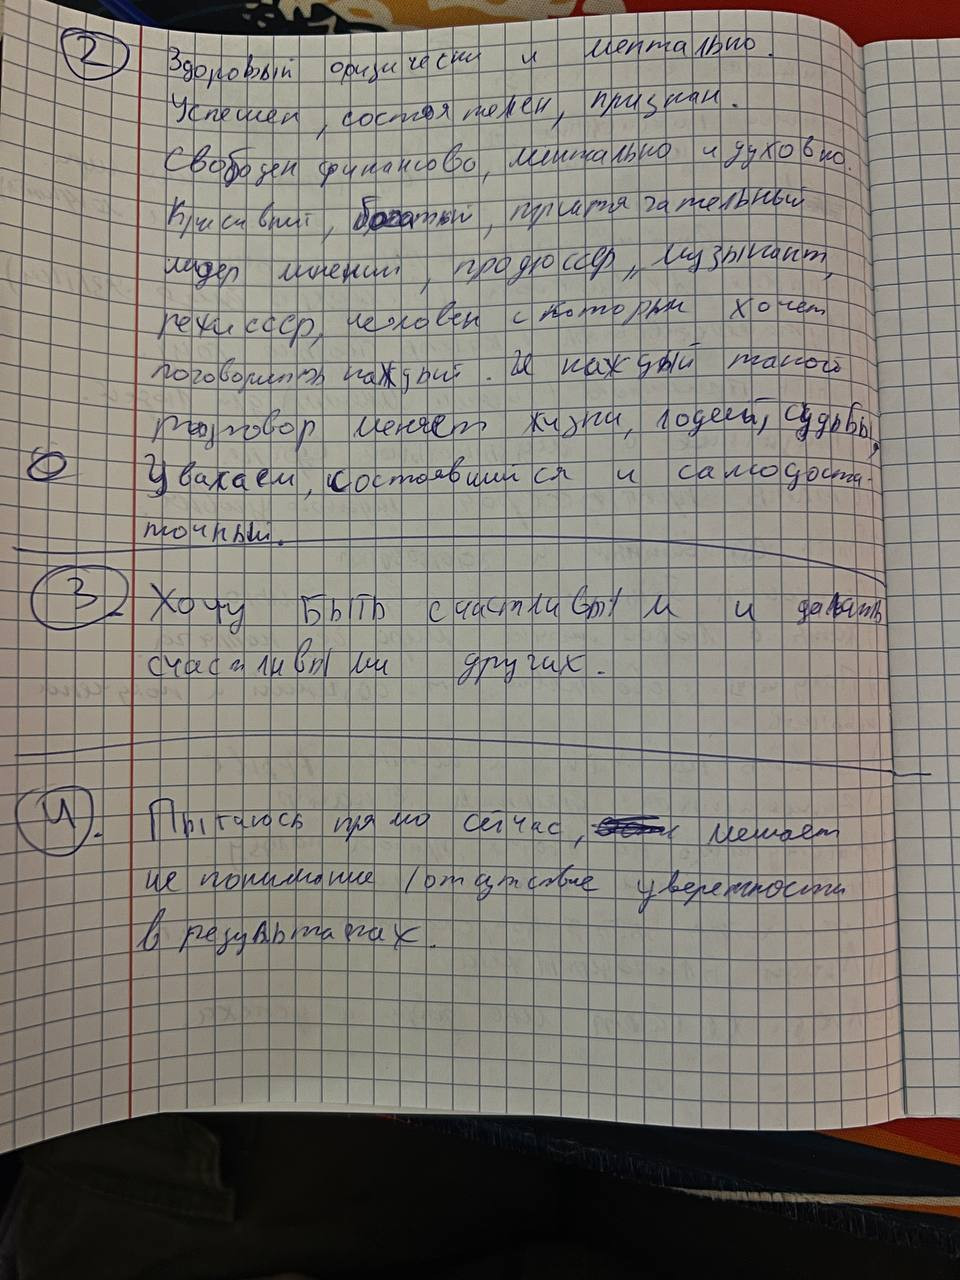 2 Здоровый физически и ментально.
Успешен, состоятелен, признан.
Свободен финансово, ментально и духовно.
Красивый, богатый, притягательный
лидер мнений, продюссер, музыкант,
режиссер, человек с которым хочет
поговорить каждый. И каждый такой
разговор меняет жизни, людей, судьбы.
Уважаем, состоявшийся и самодоста-
точный.
3. Хочу БЫТЬ счастливым и делать
счастливыми других.
4. Пытаюсь прямо сейчас, мешает
не понимание / отсутствие уверенности
в результатах.